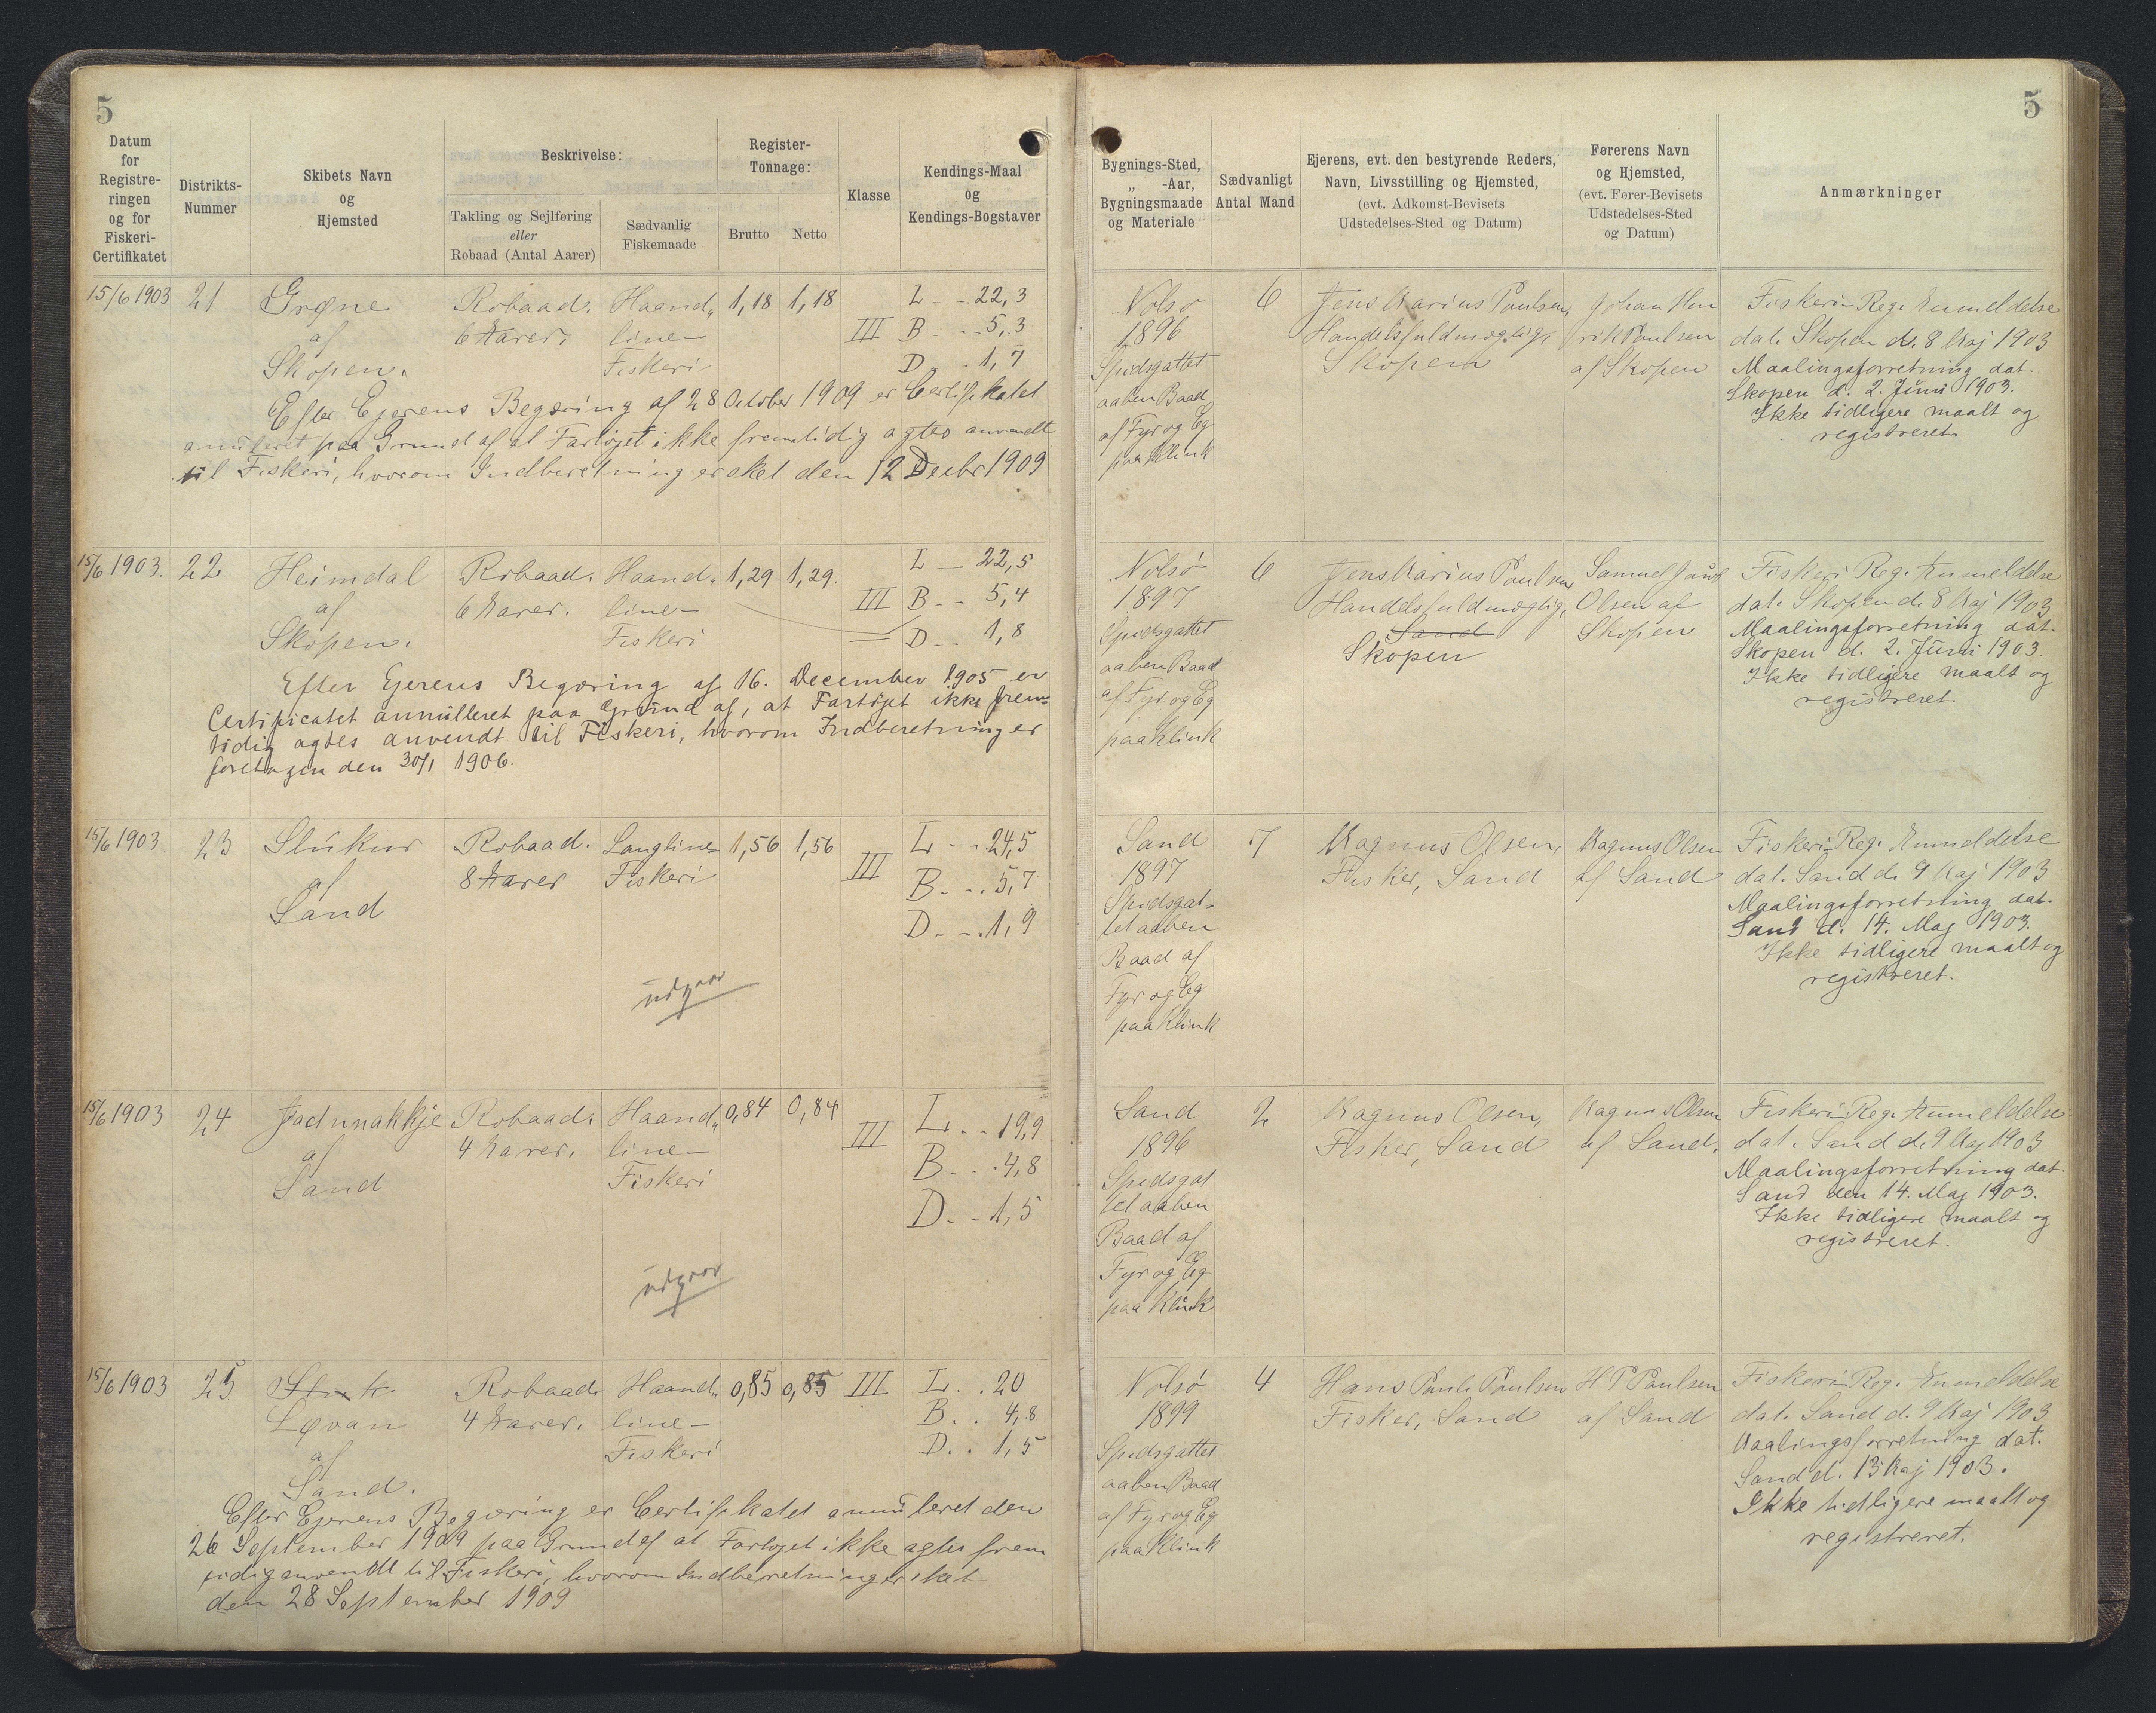 5
5
Datum
for
Registre-
ringen
og for
Fiskeri-
Certifikatet
Distrikts-
Nummer
Skibets Navn
og
Hjemsted
Beskrivelse:
Takling og Sejlføring
eller
Robaad (Antal Aarer)
Sædvanlig
Fiskemaade
Register-
Tonnage:
Brutto
Netto
Klasse
Kendings-Maal
og
Kendings-Bogstaver
Bygnings-Sted,
„ -Aar,
Bygningsmaade
og Materiale
Sædvanligt
Antal Mand
Ejerens, evt. den bestyrende Reders,
Navn, Livsstilling og Hjemsted,
(evt. Adkomst-Bevisets
Udstedelses-Sted og Datum)
Førerens Navn
og Hjemsted,
(evt. Fører-Bevisets
Udstedelses-Sted
og Datum)
Anmærkninger
15/6 1903
21
Grøne
af
Skopen.
Robaad.
6 Aarer.
Haand-
line-
Fiskeri
1,18
1,18
III
L - - 22,3
B - - 5,3
D - - 1,7
Efter Ejerens Begæring af 28 October 1909 er Certifikatet
annuleret paa Grund af at Fartøjet ikke fremtidig agtes anvendt
til Fiskeri, hvorom Indberetning er sket den 12 Decbr 1909
Nolsø
1896
Spidsgattet
aaben Baad
af Fyr og Eg
paa Klink
6
Jens Marius Poulsen,
Handelsfuldmægtig,
Skopen
Johan Hen
rik Poulsen
af Skopen
Fiskeri-Reg. Anmeldelse
dat. Skopen d. 8 Maj 1903
Maalingsforretning dat.
Skopen d. 2. Juni 1903.
Ikke tidligere maalt og
registreret
15/6 1903.
22
Heimdal
af
Skopen.
Robaad.
6 Aarer.
Haand-
line-
Fiskeri
1,29
1,29.
III
L - 22,5
B - - 5,4
D - - 1,8
Efter Ejerens Begæring af 16. December 1905 er
Certificatet annulleret paa Grund af, at Fartøjet ikke frem-
tidig agtes anvendt til Fiskeri, hvorom Indberetning er
foretagen den 30/1 1906.
Nolsø
1897
Spidsgattet
aaben Baad
af Fyr og Eg
paa Klink
6
Jens Marius Poulsen,
Handelsfuldmægtig,
Sand
Skopen
Samuel
Olsen af
Skopen
Fiskeri Reg. Anmeldelse
dat. Skopen d. 8 Maj 1903
Maalingsforretning dat.
Skopen d. 2. Juni 1903.
Ikke tidligere maalt og
registreret.
15/6 1903
23
Slukur
af
Sand
Robaad.
8 Aarer
Langline-
Fiskeri
1,56
1,56
III
L - - 24,5
B - - 5,7
D - - 1,9
udgaar
Sand
1897
Spidsgat-
tet aaben
Baad af
Fyr og Eg
paa Klink
7
Magnus Olsen,
Fisker, Sand
Magnus Olsen
af Sand
Fiskeri-Reg. Anmeldelse
dat. Sand d. 9 Maj 1903
Maalingsforretning dat.
Sand d. 14. Maj 1903.
Ikke tidligere maalt og
registreret.
15/6 1903
24
af
Sand
Robaad.
4 Aarer.
Haand-
line-
Fiskeri
0,84
0,84
III
L - - 19,9
B - - 4,8
D - - 1,5
udgaar
Sand
1896
Spidsgat
tet aaben
Baad af
Fyr og Eg
paa Klink
2
Magnus Olsen,
Fisker, Sand
Magnus Olsen
af Sand.
Fiskeri-Reg. Anmeldelse
dat. Sand d. 9 Maj 1903
Maalingsforretning dat.
Sand den 14. Maj 1903.
Ikke tidligere maalt og
registreret.
15/6 1903
25
Løvan
af
Sand.
Robaad.
4 Aarer.
Haand-
line-
Fiskeri
0,85
0,85
III
L. . 20
B. . 4,8
D. . 1,5
Efter Ejerens Begæring er Certifikatet annuleret den
26 September 1909 paa Grund af at Fartøjet ikke agtes frem
tidig anvendt til Fiskeri, hvorom Indberetning er sket
den 28 September 1909
Nolsø
1899
Spidsgattet
aaben Baad
af Fyr og Eg
paa Klink
4
Hans Paule Poulsen
Fisker, Sand
H P Poulsen
af Sand
Fiskeri-Reg. Anmeldelse
dat. Sand d. 9 Maj 1903
Maalingsforretning dat.
Sand d. 13 Maj 1903.
Ikke tidligere maalt og
registreret.